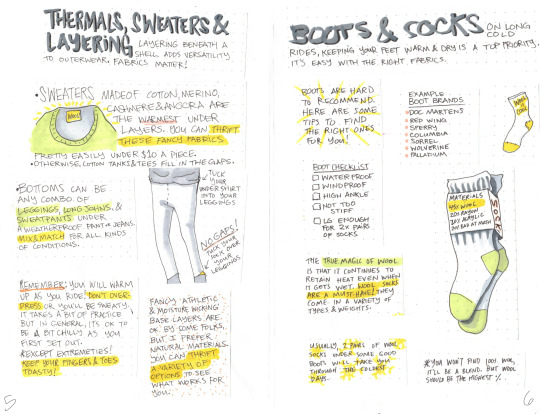 THERMALS, SWEATERS &
LAYERING LAYERING BENEATH A
SHELL ADDS VERSATILITY
TO OUTERWEAR, FABRICS MATTER!
• SWEATERS MADE OF COTTON, MERINO,
CASHMERE & ANGORA ARE
THE WARMEST UNDER
LAYERS. YOU CAN THRIFT
THESE FANCY FABRICS
PRETTY EASILY UNDER $10 A PIECE.
• OTHERWISE, COTTON TANKS & TEES FILL IN THE GAPS.
WOOL
• BOTTOMS CAN BE
ANY COMBO OF
LEGGINGS, LONG JOHNS, &
SWEATPANTS UNDER
A WEATHERPROOF PANT or JEANS.
MIX & MATCH FOR ALL KINDS
OF CONDITIONS.
TUCK
YOUR
UNDERSHIRT
INTO YOUR
LEGGINGS
NO GAPS!
TUCK YOUR
SOCK OVER
YOUR
LEGGINGS
REMEMBER: YOU WILL WARM
UP AS YOU RIDE. DON'T OVER-
DRESS OR YOU'LL BE SWEATY.
IT TAKES A BIT OF PRACTICE
BUT IN GENERAL, IT'S OK TO
BE A BIT CHILLY AS YOU
FIRST SET OUT.
*EXCEPT EXTREMETIES!
KEEP YOUR FINGERS & TOES
TOASTY!
FANCY ATHLETIC
& MOISTURE WICKING
BASE-LAYERS ARE
OK BY SOME FOLKS,
BUT I PREFER
NATURAL MATERIALS.
YOU CAN THRIFT
A VARIETY OF
OPTIONS TO SEE
WHAT WORKS FOR
YOU.
5
BOOTS & SOCKS ON LONG
COLD
RIDES, KEEPING YOUR FEET WARM & DRY IS A TOP PRIORITY.
IT'S EASY WITH THE RIGHT FABRICS.
BOOTS ARE HARD
TO RECOMMEND.
HERE ARE SOME
TIPS TO FIND
THE RIGHT ONES
FOR YOU!
EXAMPLE
BOOT BRANDS
• DOC MARTENS
• RED WING
• SPERRY
• COLUMBIA
• SOREL
• WOLVERINE
• PALLADIUM
BOOT CHECKLIST
WATERPROOF
WINDPROOF
HIGH ANKLE
NOT TOO
STIFF
LG ENOUGH
FOR 2X PAIRS
OF SOCKS
MATERIALS
WOOL
SOCK
THE TRUE MAGIC OF WOOL
IS THAT IT CONTINUES TO
RETAIN HEAT EVEN WHEN
IT GETS WET. WOOL SOCKS
ARE A MUST-HAVE! THEY
COME IN A VARIETY OF
TYPES & WEIGHTS.
USUALLY, 2 PAIRS OF WOOL
SOCKS UNDER SOME GOOD
BOOTS WILL TAKE YOU
THROUGH THE COLDEST
DAYS.
* YOU WON'T FIND 100% WOOL,
IT'LL BE A BLEND. BUT WOOL
SHOULD BE THE HIGHEST %.
6